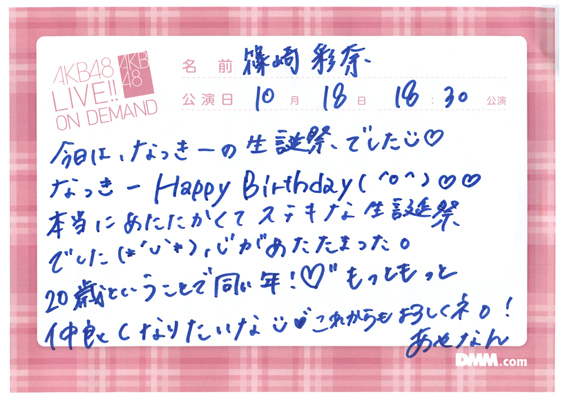 AKB48
LIVE!!
ON DEMAND
AKB
48
名前 篠崎 彩奈
公演日 10 月 18 日 18 : 30 公演
今日は、なっきーの生誕祭、でした♡
なっきー Happy Birthday (^o^)♡♡
本当にあたたかくてステキな生誕祭
でした(*´∪`*)、心があたたまった。
20歳ということで同い年!♡ もっともっと
仲良くなりたいな♥これからもよろしくネ。!
あやなん
DMM.com